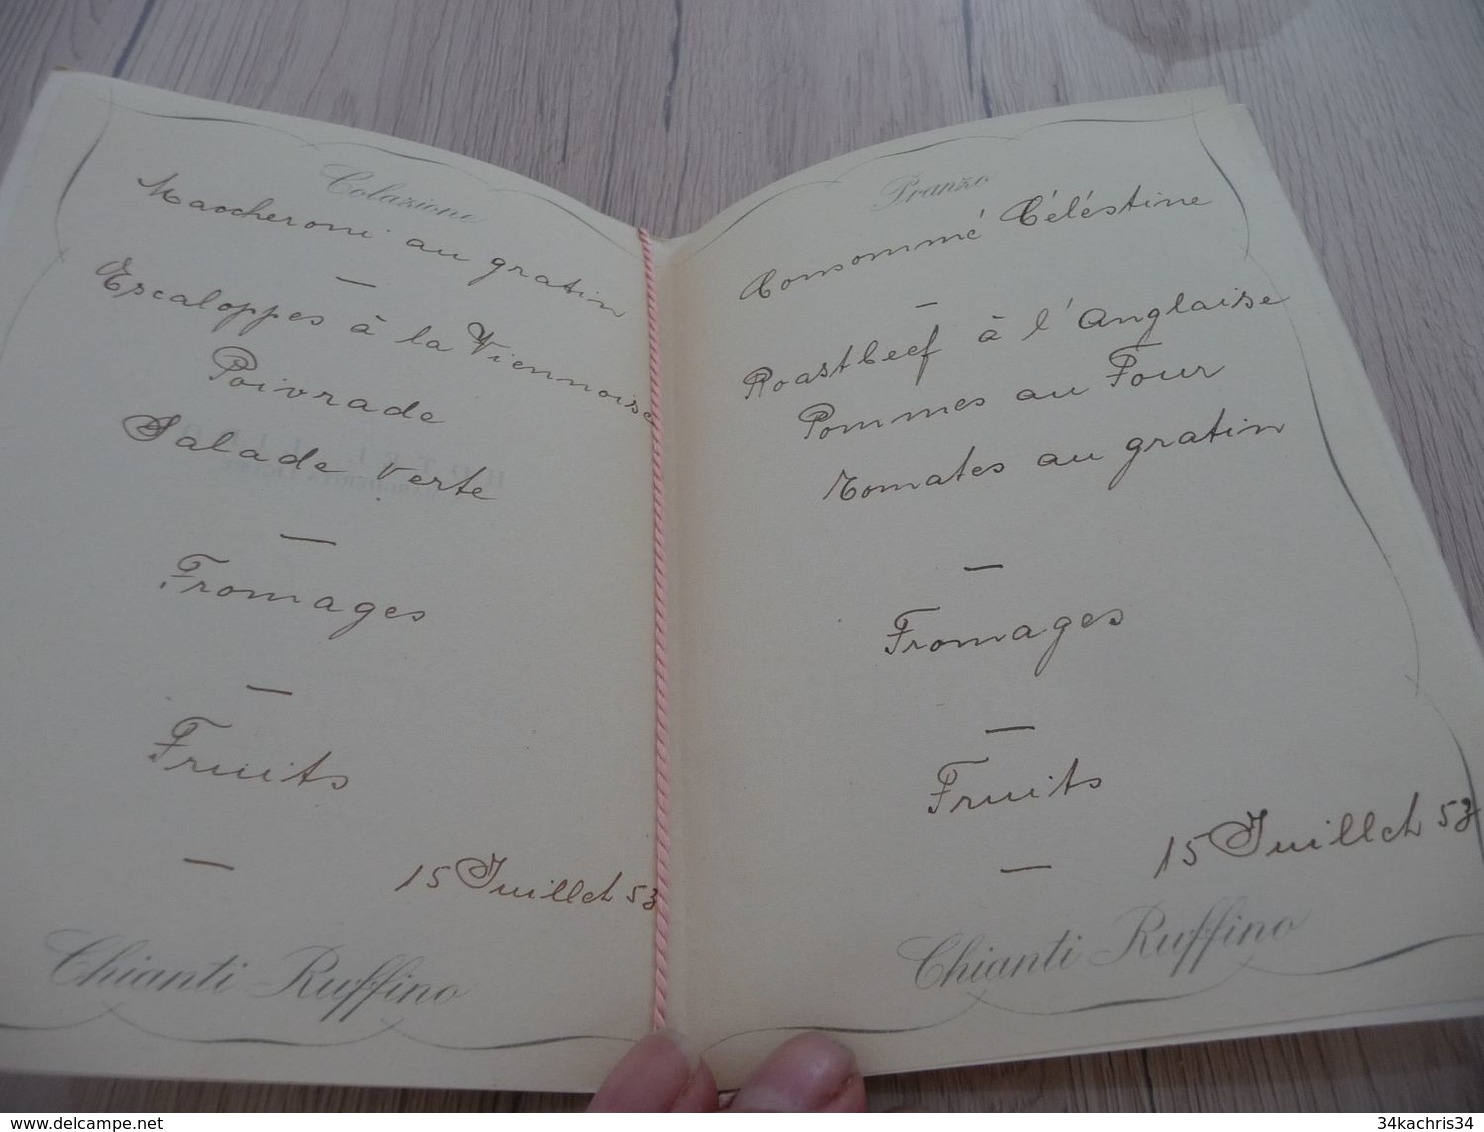 Colazione
Maccheroni au gratin
—
Escaloppes à la Viennoise
Poivrade
Salade verte
—
Fromages
—
Fruits
—
15 Juillet 53
Chianti Ruffino
Pranzo
Consommé Céléstine
—
Roastbeef à l'Anglaise
Pommes au Four
Tomates au gratin
—
Fromages
—
Fruits
—
15 Juillet 53
Chianti Ruffino
delcampe.net
34kachris34